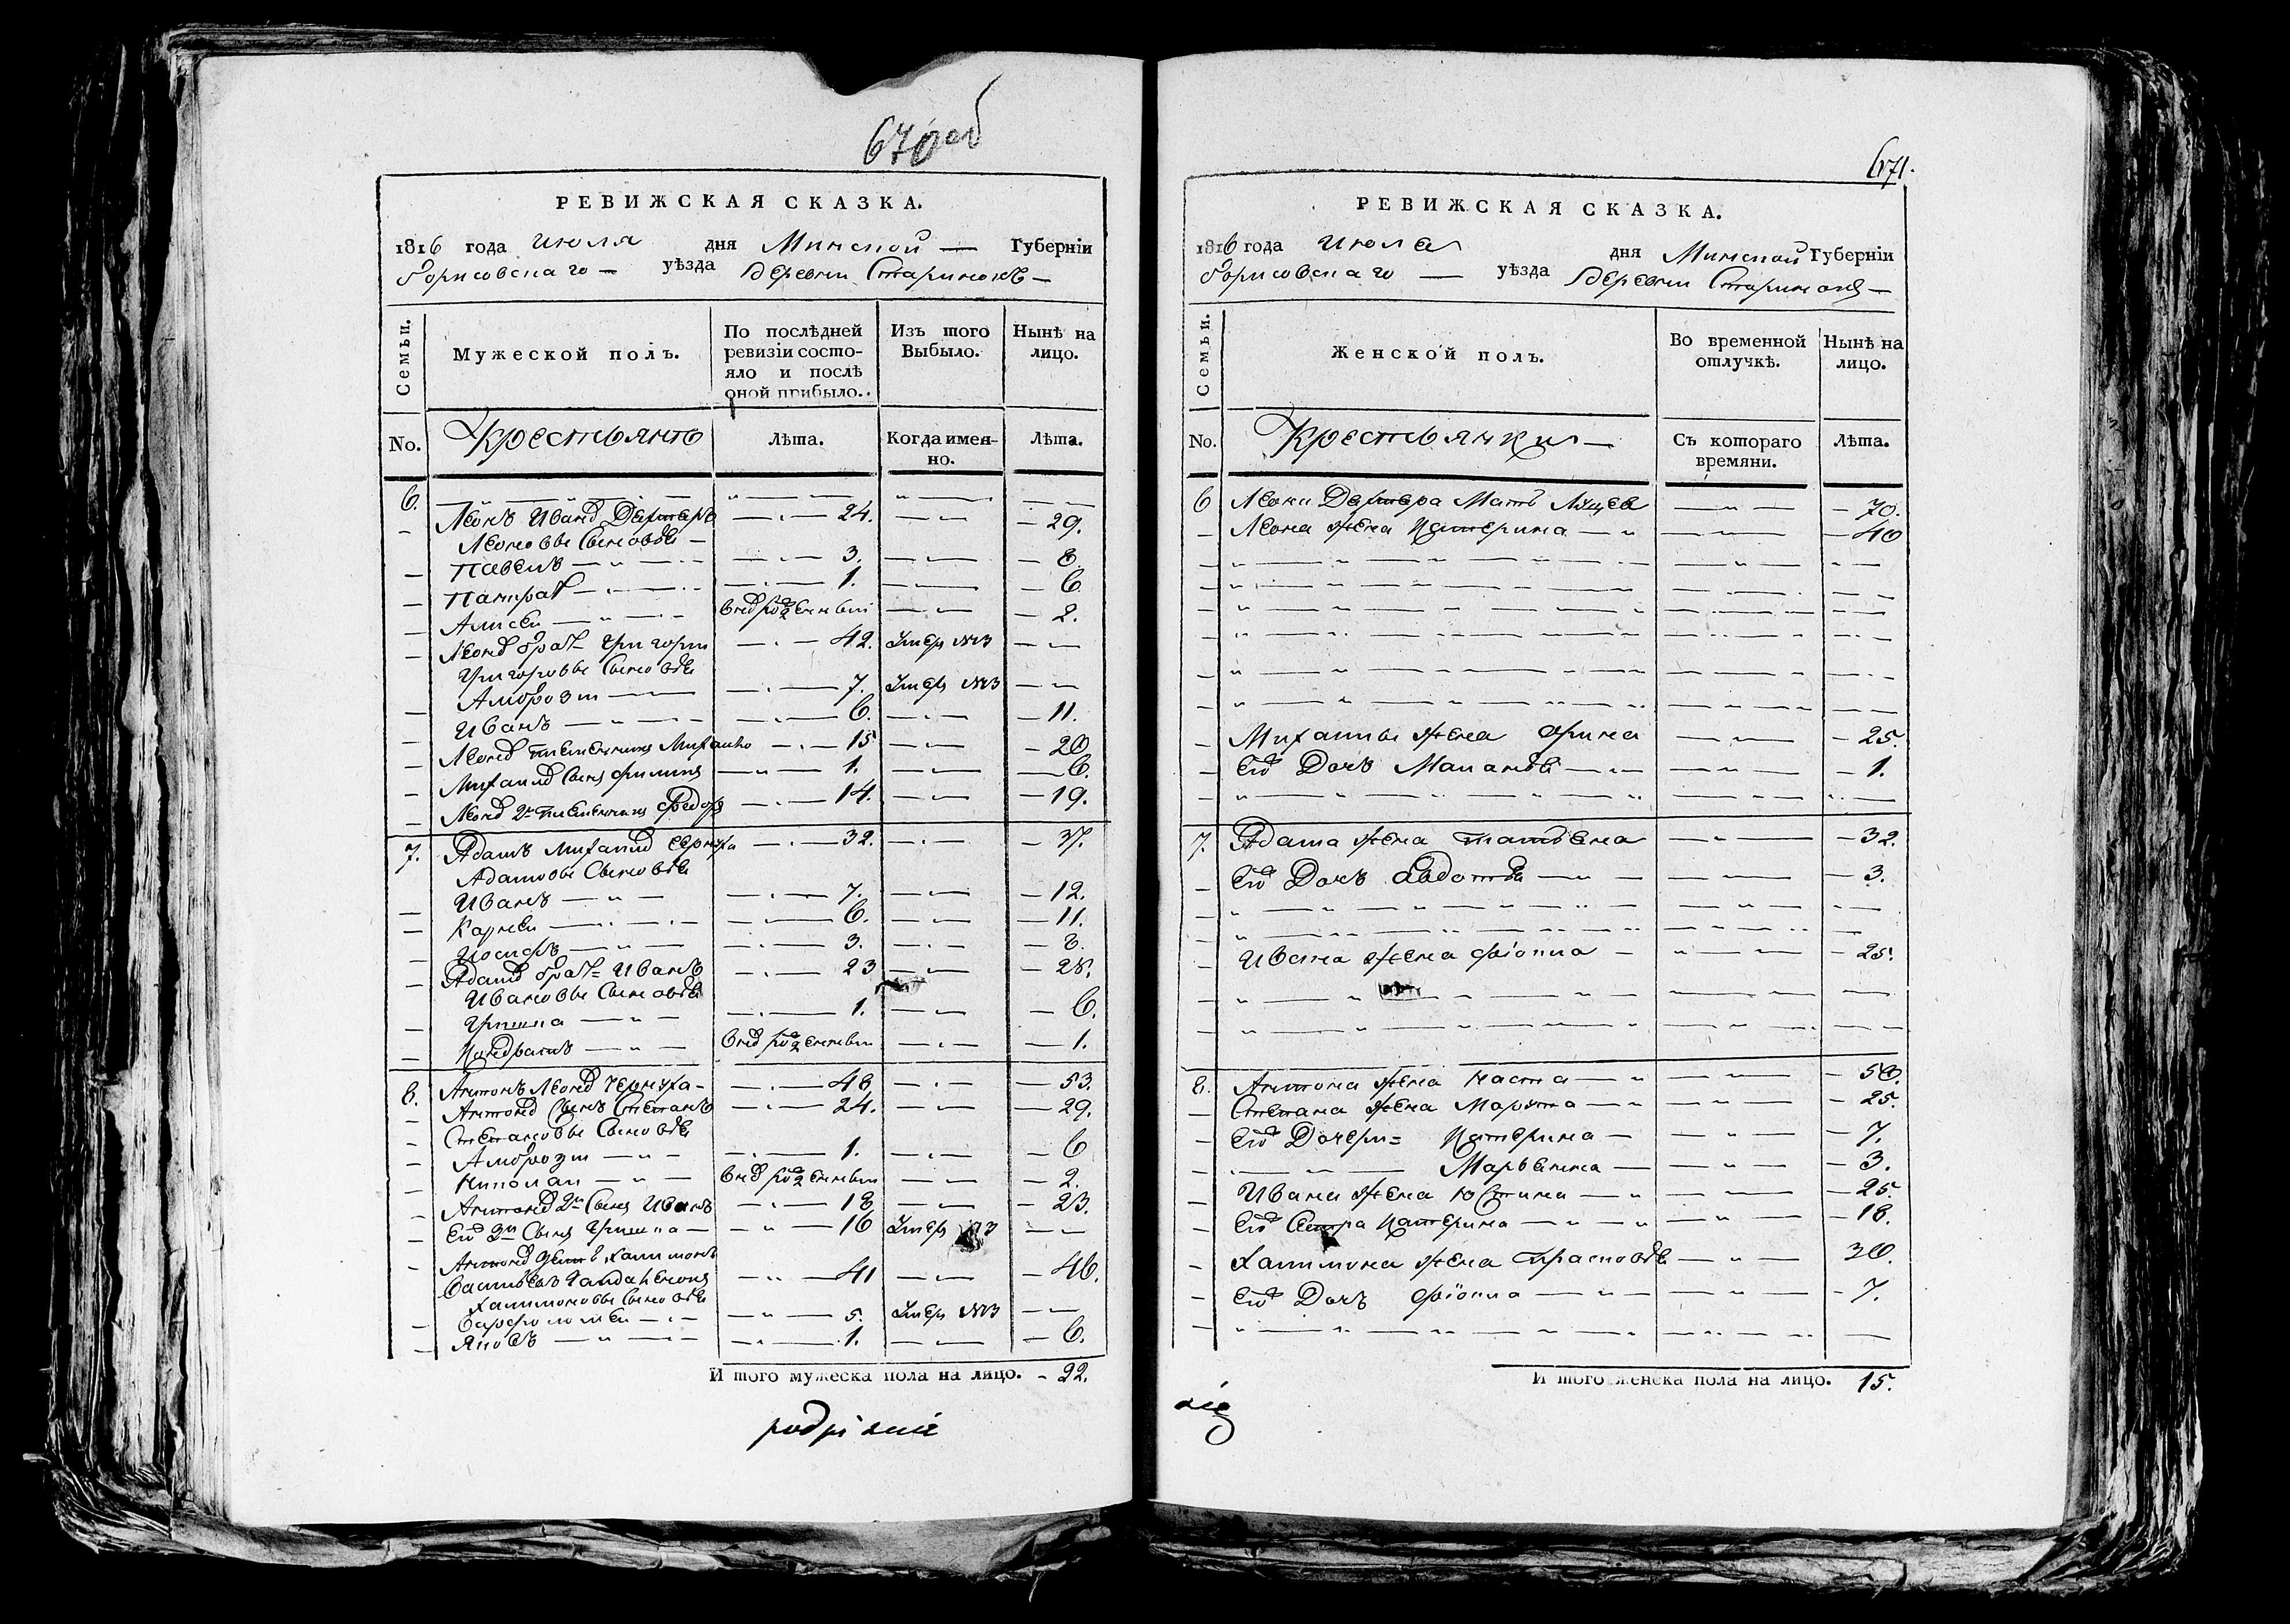 670 об
РЕВИЖСКАЯ СКАЗКА.
1816 года июля дня Минской — Губерніи
Борисовскаго — уѣзда деревни Старинокъ —
Семьи.
Мужеской полъ.
По послѣдней ревизіи состояло и послѣ оной прибыло.
Изъ того Выбыло.
Нынѣ на лицо.
No.
Крестьянъ
лѣта.
Когда именно.
лѣта.
6.
Леонъ Иванов — 24. — 29.
Леоновы сыновья —
Павелъ — 3. — 8.
Панкрат — 1. — 6.
Алисей — вновь рожденный — 2.
Леонов братъ Григорий — 42. Умер 1813
Григоровы сыновья
Амброзий — 7. Умер 1813
Иванъ — 6. — 11.
Леонов племенникъ Михайло — 15 — 20
Михайлов сынъ Филипъ — 1. — 6.
Леонов 2й племенникъ Федор — 14. — 19.
7. Адамъ Михайлов Чернуха — 32. — 37.
Адамовы сыновья
Иванъ — 7. — 12.
Карней — 6. — 11.
Иосифъ — 3. — 8.
Адамов братъ Иванъ — 23 — 28.
Ивановы сыновья
Гришка — 1. — 6.
Кондратъ — вновь рожденный — 1.
8. Антонъ Леонов Чернуха — 48 — 53.
Антонов сынъ Степанъ — 24. — 29.
Степановы сыновья
Амброзий — 1. — 6
Николай — вновь рожденный — 2.
Антонов 2й сынъ Иванъ — 18 — 23.
Его 3й сынъ Гришка — 16 Умер 1813
Антонов зять Халимонъ
Васильевъ — 41 — 46.
Халимоновы сыновья
Варфоломей — 5. Умер 1813
Яковъ — 1. — 6.
И того мужеска пола на лицо. — 22.
podpisanie
671.
РЕВИЖСКАЯ СКАЗКА.
1816 года июля дня Минской Губерніи
Борисовскаго — уѣзда деревни Старинокъ —
Семьи.
Женской полъ.
Во временной отлучкѣ.
Нынѣ на лицо.
No.
Крестьянки —
Съ котораго времяни.
лѣта.
6 Леона Мать — 70.
Леона жена Катерина — 40
Михайлы жена — 25.
Его Дочь Маланья — 1.
7. Адама жена Татьена — 32.
Его Дочь Авдотья — 3.
Ивана жена Фіокла — 25.
8. Антона жена Наста — 50.
Степана жена Марута — 25.
Его Дочери = Катерина — 7.
Марьянна — 3.
Ивана жена Юстина — 25.
Его Сестра Катерина — 18.
Халимона жена Прасковья — 30.
Его Дочь Фіокла — 7.
И того женска пола на лицо. 15.